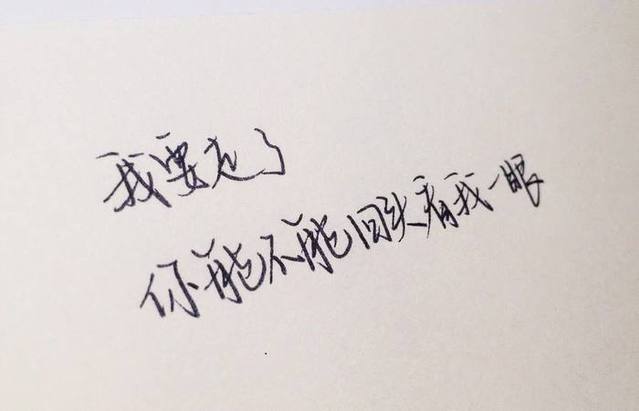 我要走了
你能不能回头看我一眼